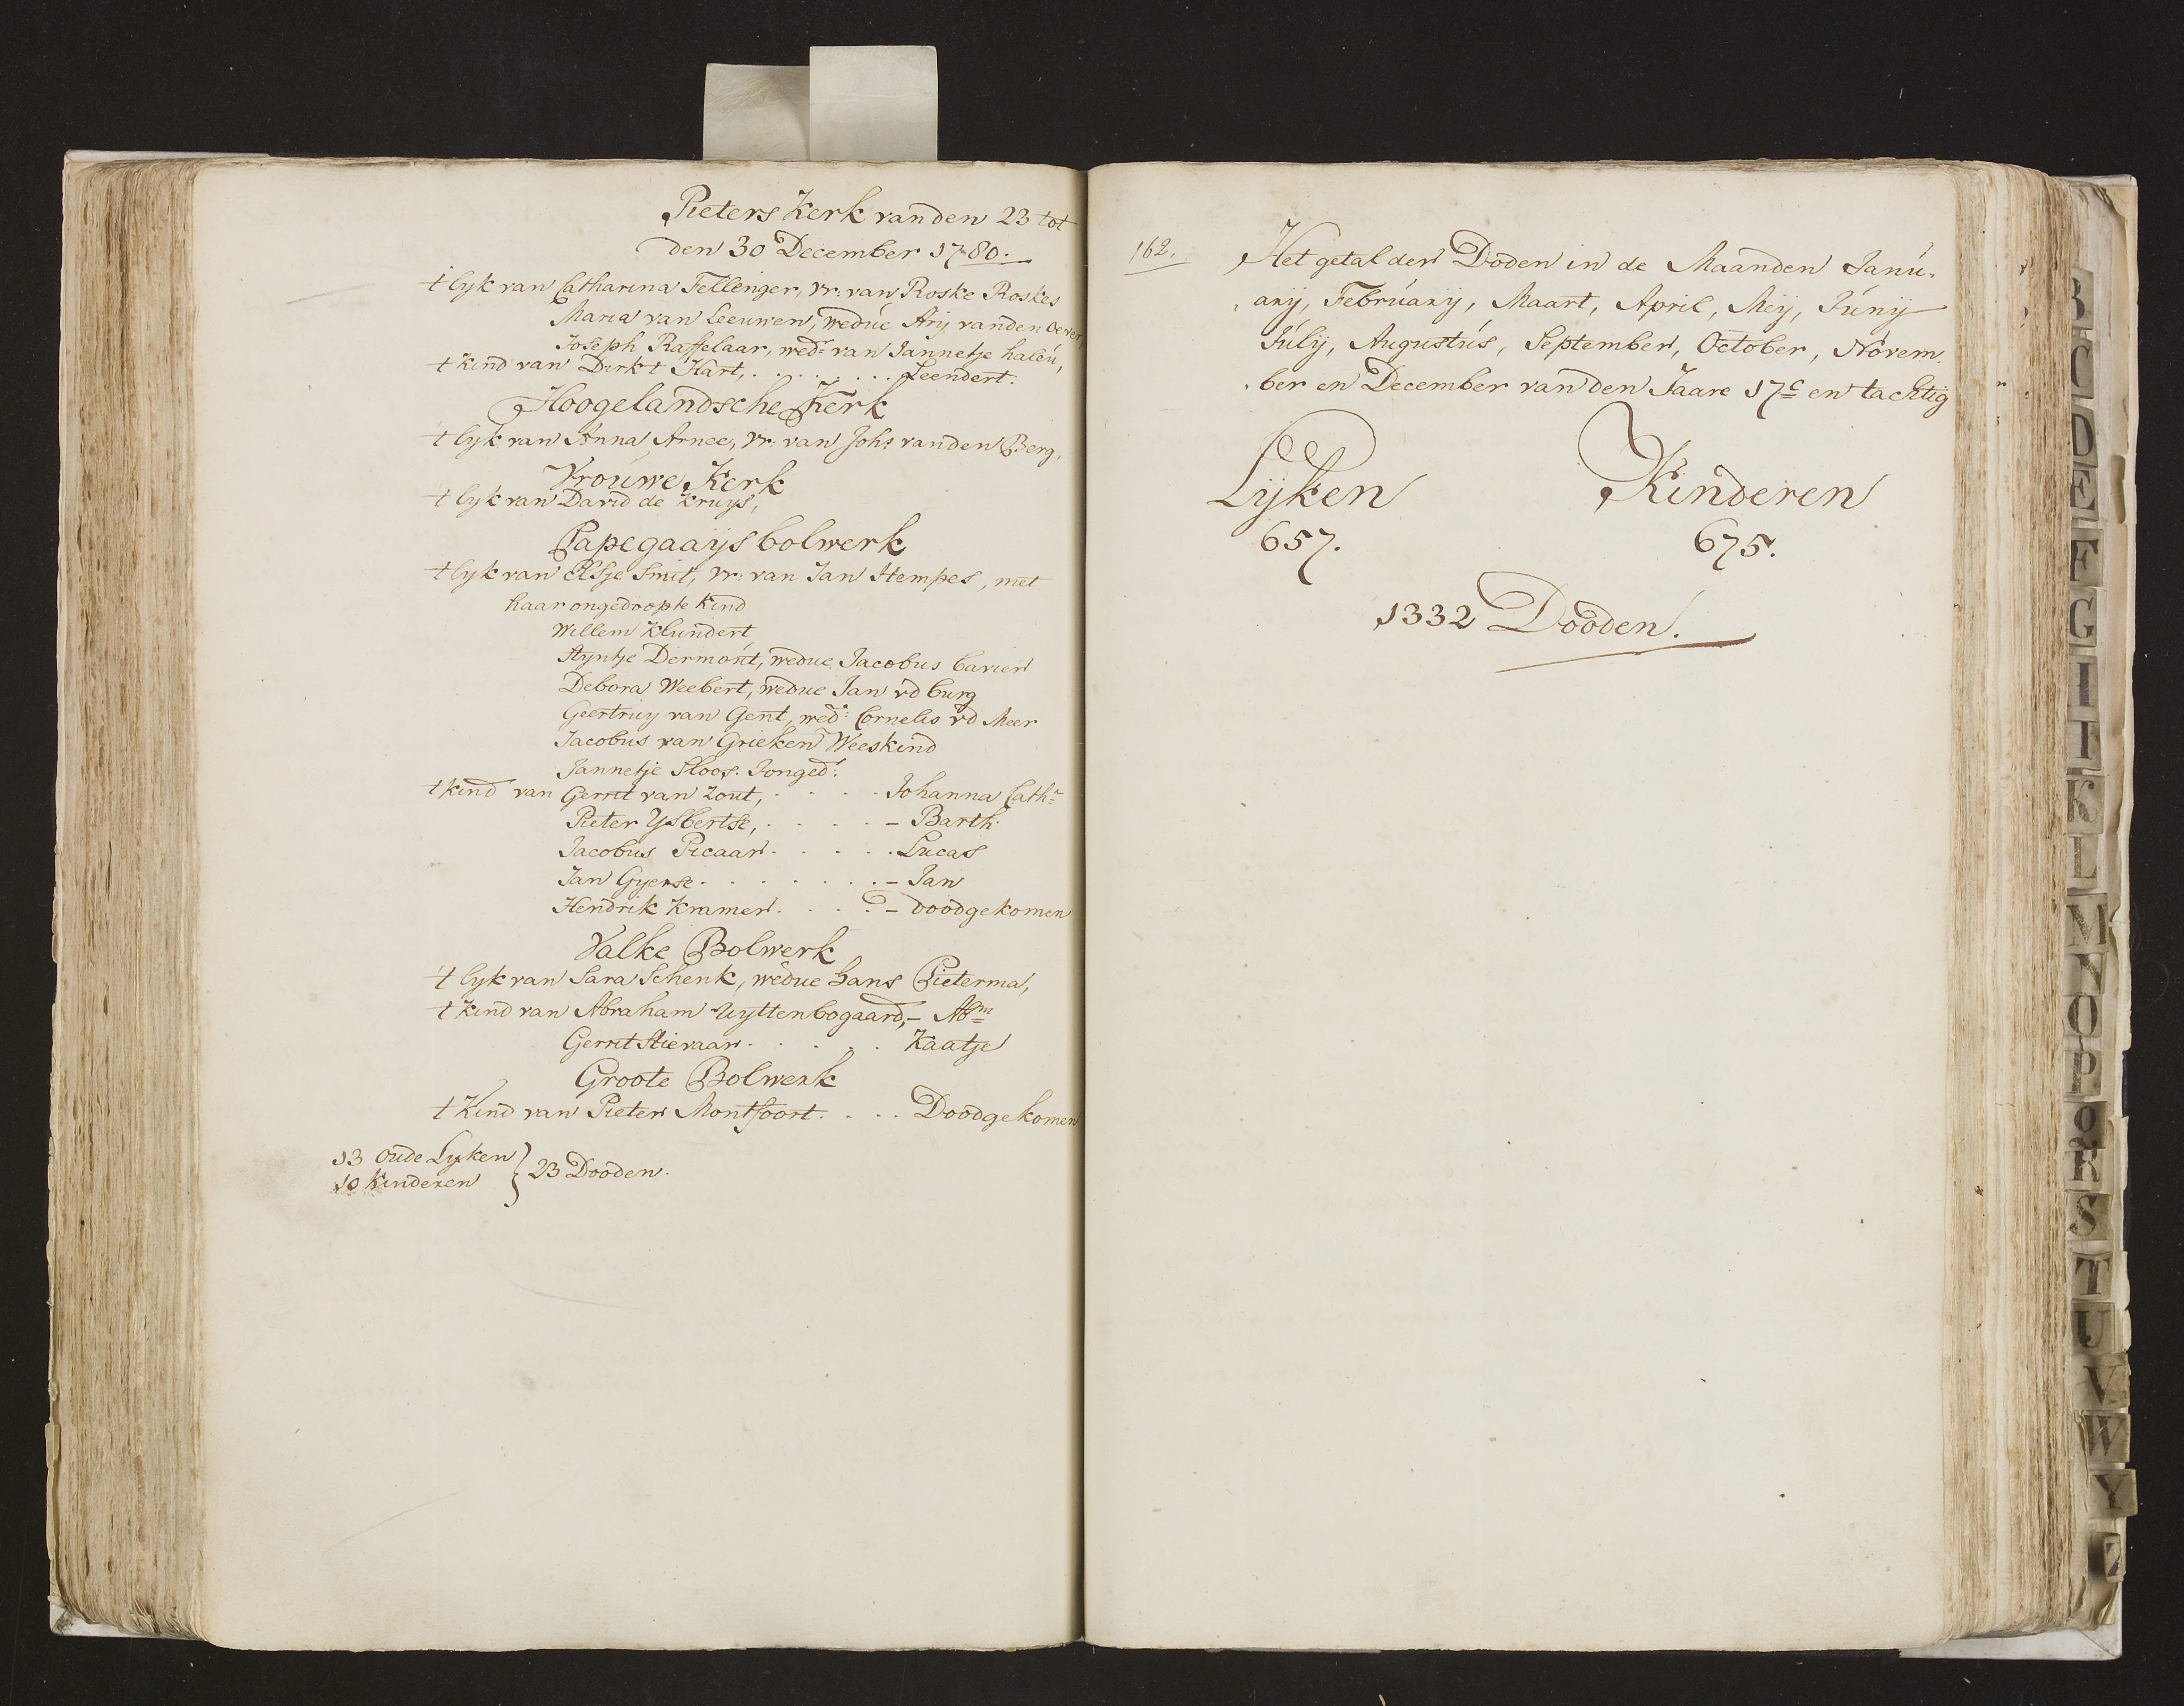 Pieters Kerk van den 23 tot
den 30 December 1780.
t lyk van Catharina Fellenger, vr: van Roske Roskes
Maria van Leeuwen, wedue Arij vanden Oever
Joseph Raffelaar, wedr van Jannetje haleu,
t kind van Dirk t Hart, . . . . . . . . Leendert.
Hoogelandsche Kerk
t lyk van Anna Arnee, vr: van Johs vanden Berg,
Vrouwe Kerk
t lyk van David de Kruys,
Papegaaijs bolwerk
t lyk van Elsje Smit, vr: van Jan Hempes, met
haar ongedoopte kind
Willem Klundert
Styntje Dermont, weduе Jacobus Carier
Debora Weebert, wedue Jan vd burg
Geertruy van Gent, wed: Cornelis vd Meer
Jacobus van Grieken Weeskind
Jannetje Sloos. Jonged:
t kind van Gerrit van Zout, . . . . Johanna Cath:a
Pieter Ysbertse, . . . . - Barth
Jacobus Picaar . . . . . Lucas
Jan Gyerse . . . . . . . - Jan
Hendrik Kramer . . . . - doodgekomen
Valke Bolwerk
t lyk van Sara Schenk, wedue hans Pieterma,
t kind van Abraham Uyttenbogaard, - Abm
Gerrit Stievaar . . . . . Kaatje
Groote Bolwerk
t Kind van Pieter Montfoort . . . . Doodgekomen
13 Oude Lyken
10 Kinderen } 23 Dooden.
162.
Het getal der Doden in de Maanden Janu-
arij, Februarij, Maart, April, Meij, Junij
Julij, Augustus, September, October, Novem-
ber en December van den Jaare 17c en tachtig
Lijken Kinderen
657. 675.
1332 Dooden.
B
C
D
E
F
G
I
I
K
L
M
N
O
P
Q
R
S
T
U
V
W
Y
Z